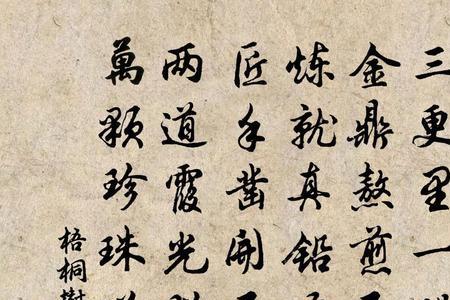 三更里一
金鼎熬煎
炼就真铅
匠手凿开
两道霞光
萬颗珍珠
梧桐树